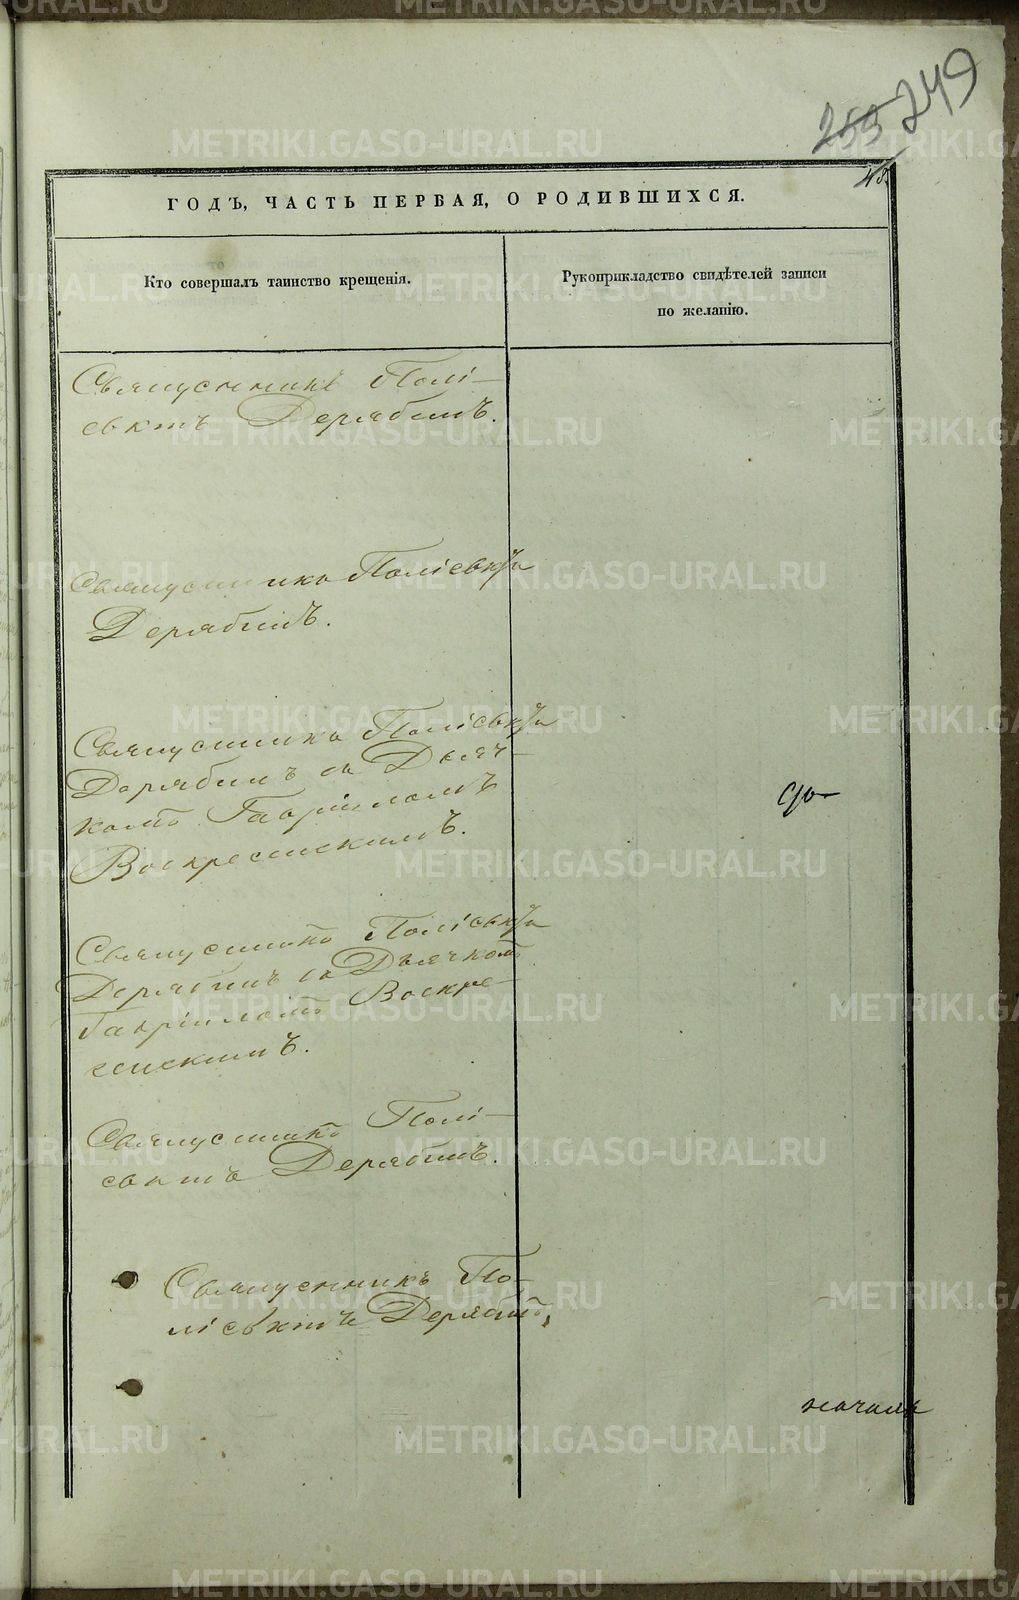 259 249
ГОДЪ, ЧАСТЬ ПЕРВАЯ, О РОДИВШИХСЯ.
Кто совершалъ таинство крещенія.
Рукоприкладство свидѣтелей записи
по желанію.
Священникъ Полі-
евктъ Дерябинъ.
Священникъ Поліевктъ
Дерябинъ.
Священникъ Поліевктъ
Дерябинъ съ Дьяч-
комъ Гавріиломъ
Воскресенскимъ.
Священникъ Поліевктъ
Дерябинъ съ Дьячкомъ
Гавріиломъ Воскре-
сенскимъ.
Священникъ Полі-
евктъ Дерябинъ.
Священникъ По-
ліевктъ Дерябинъ,
METRIKI.GASO-URAL.RU